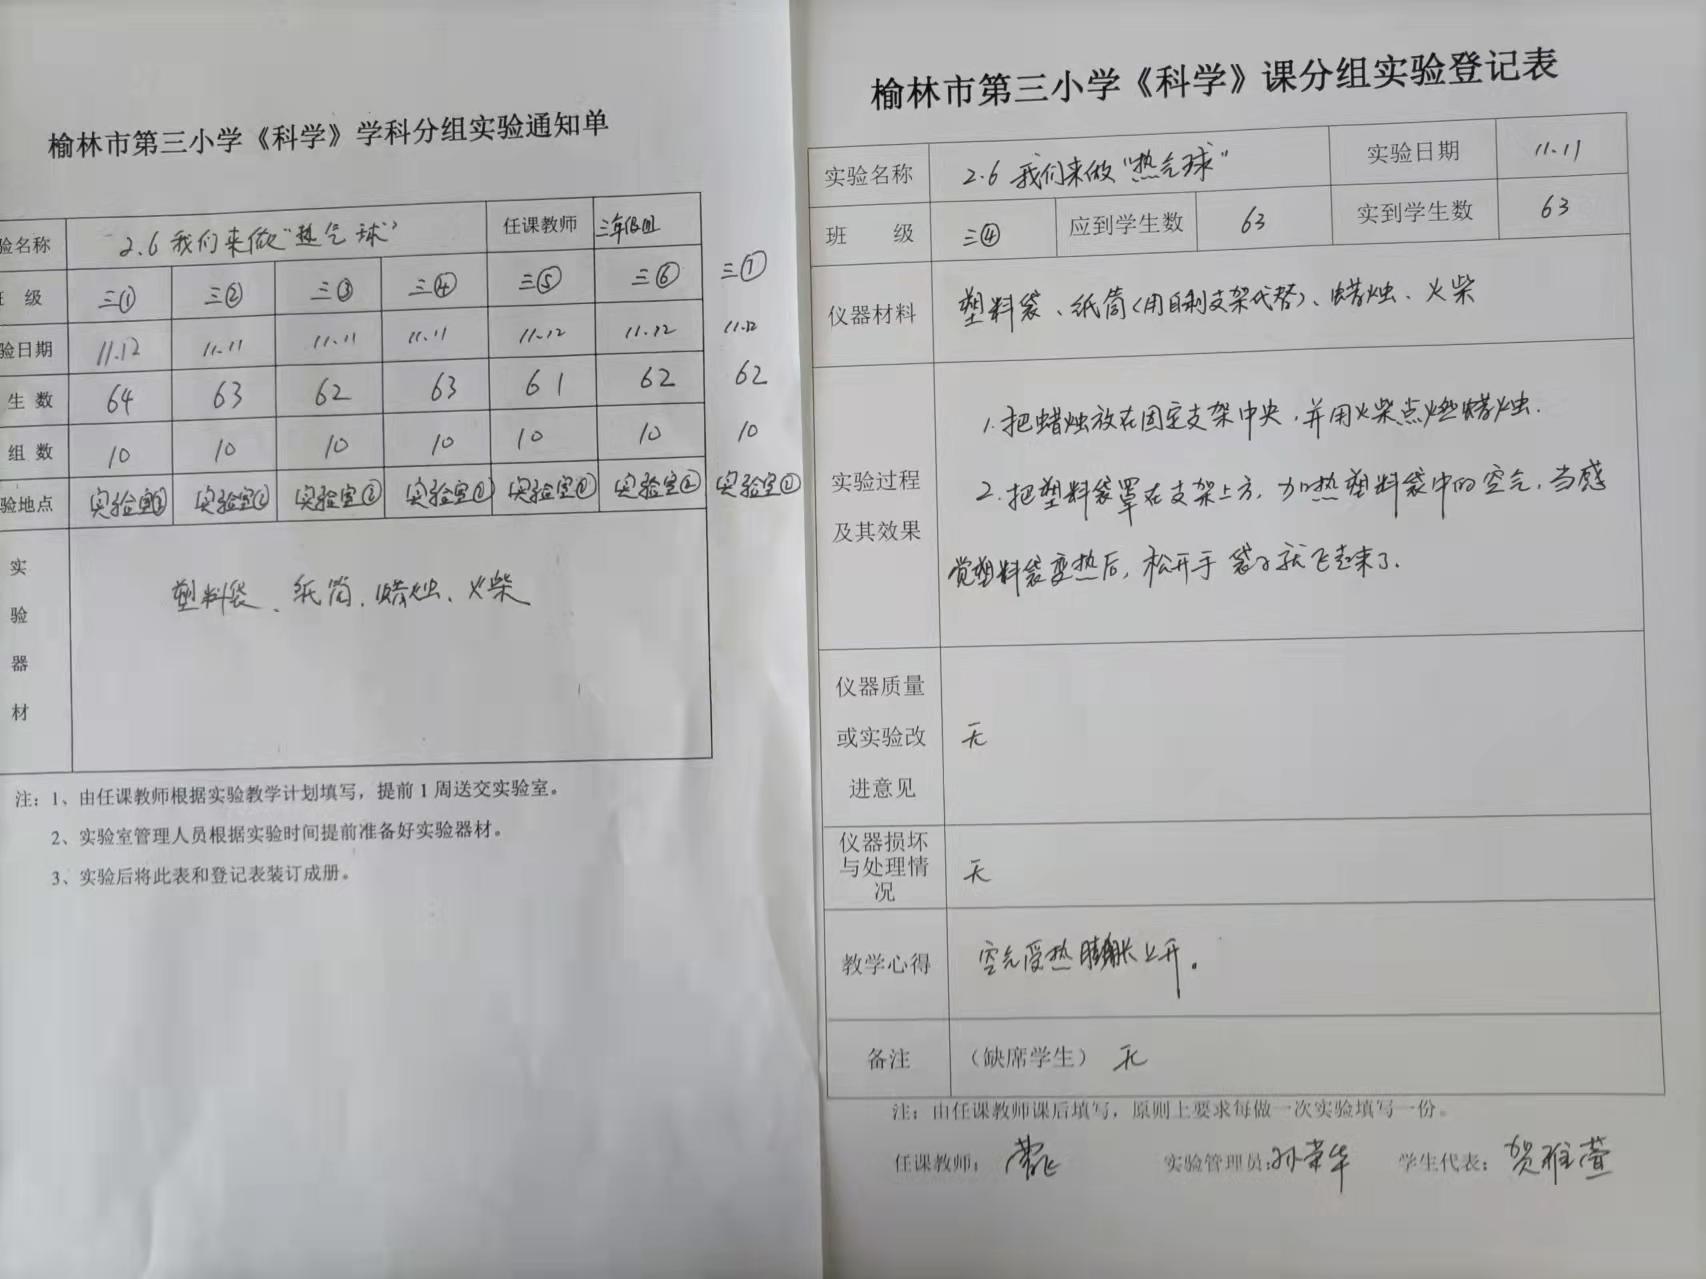 榆林市第三小学《科学》学科分组实验通知单
验名称 2.6 我们来做"热气球" 任课教师 三年级组
级 三① 三② 三③ 三④ 三⑤ 三⑥ 三⑦
验日期 11.12 11.11 11.11 11.11 11.12 11.12 11.12
生数 64 63 62 63 61 62 62
组数 10 10 10 10 10 10 10
验地点 实验室 实验室 实验室② 实验室 实验室 实验室② 实验室
实验器材 塑料袋、纸筒、蜡烛、火柴
注：1、由任课教师根据实验教学计划填写，提前1周送交实验室。
2、实验室管理人员根据实验时间提前准备好实验器材。
3、实验后将此表和登记表装订成册。
榆林市第三小学《科学》课分组实验登记表
实验名称 2.6 我们来做"热气球" 实验日期 11.11
班 级 三④ 应到学生数 63 实到学生数 63
仪器材料 塑料袋、纸筒(用自制支架代替)、蜡烛、火柴
实验过程
及其效果
1.把蜡烛放在固定支架中央,并用火柴点燃蜡烛.
2.把塑料袋罩在支架上方,加热塑料袋中的空气,当感
觉塑料袋变热后,松开手袋子就飞起来了.
仪器质量
或实验改
进意见
无
仪器损坏
与处理情
况
无
教学心得 空气受热膨胀上升。
备注 （缺席学生） 无
注：由任课教师课后填写，原则上要求每做一次实验填写一份。
任课教师： 实验管理员:孙荣华 学生代表：贺雅萱